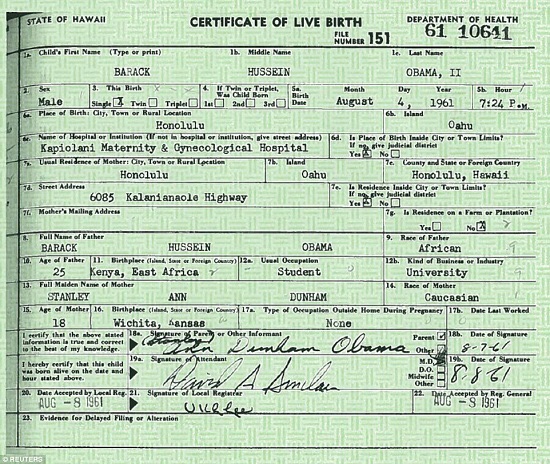 STATE OF HAWAII CERTIFICATE OF LIVE BIRTH DEPARTMENT OF HEALTH
FILE NUMBER 151 61 10641
1a. Child's First Name (Type or print) 1b. Middle Name 1c. Last Name
BARACK HUSSEIN OBAMA, II
2. Sex 3. This Birth 4. If Twin or Triplet, Was Child Born 5a. Birth Date Month Day Year 5b. Hour
Male Single X Twin Triplet 1st 2nd 3rd August 4, 1961 7:24 P.M.
6a. Place of Birth: City, Town or Rural Location 6b. Island
Honolulu Oahu
6c. Name of Hospital or Institution (If not in hospital or institution, give street address) 6d. Is Place of Birth Inside City or Town Limits? If no, give judicial district
Kapiolani Maternity & Gynecological Hospital Yes X No
7a. Usual Residence of Mother: City, Town or Rural Location 7b. Island 7c. County and State or Foreign Country
Honolulu Oahu Honolulu, Hawaii
7d. Street Address 7e. Is Residence Inside City or Town Limits? If no, give judicial district
6085 Kalanianaole Highway Yes X No
7f. Mother's Mailing Address 7g. Is Residence on a Farm or Plantation?
Yes No X
8. Full Name of Father 9. Race of Father
BARACK HUSSEIN OBAMA African
10. Age of Father 11. Birthplace (Island, State or Foreign Country) 12a. Usual Occupation 12b. Kind of Business or Industry
25 Kenya, East Africa Student University
13. Full Maiden Name of Mother 14. Race of Mother
STANLEY ANN DUNHAM Caucasian
15. Age of Mother 16. Birthplace (Island, State or Foreign Country) 17a. Type of Occupation Outside Home During Pregnancy 17b. Date Last Worked
18 Wichita, Kansas None
I certify that the above stated information is true and correct to the best of my knowledge. 18a. Signature of Parent or Other Informant Parent Other 18b. Date of Signature
(Stanley) Ann Dunham Obama 8-7-61
I hereby certify that this child was born alive on the date and hour stated above. 19a. Signature of Attendant M.D. D.O. Midwife Other 19b. Date of Signature
David A Sinclair 8-8-61
20. Date Accepted by Local Reg. 21. Signature of Local Registrar 22. Date Accepted by Reg. General
AUG -8 1961 U K L Lee AUG -8 1961
23. Evidence for Delayed Filing or Alteration
© REUTERS